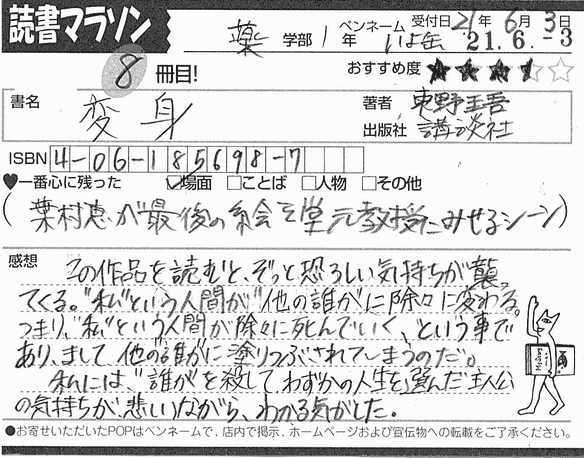 読書マラソン
薬 学部 1 年 ペンネーム いよ缶 受付日 21年 6月 3日
21.6.-3
8 冊目!
おすすめ度 ★★★★☆☆
書名 変身
著者 東野圭吾
出版社 講談社
ISBN 4-06-185698-7
♥一番心に残った ☑場面 □ことば □人物 □その他
(葉村恵が最後の絵を堂元教授にみせるシーン)
感想 この作品を読むと、ぞっと恐ろしい気持ちが襲っ
てくる。"私"という人間が"他の誰か"に除々に変わる。
つまり、"私"という人間が除々に死んでいく、という事で
あり、まして、他の誰かに塗りつぶされてしまうのだ。
私には、"誰か"を殺してわずかの人生を選んだ主人公
の気持ちが、悲しいながら、わかる気がした。
●お寄せいただいたPOPはペンネームで、店内で掲示、ホームページおよび宣伝物への転載をご了承ください。